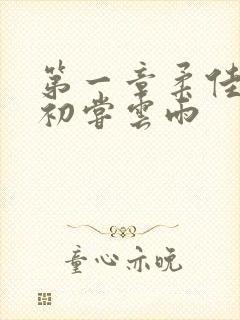 第一章柔佳
初嘗雲雨
童心亦晚